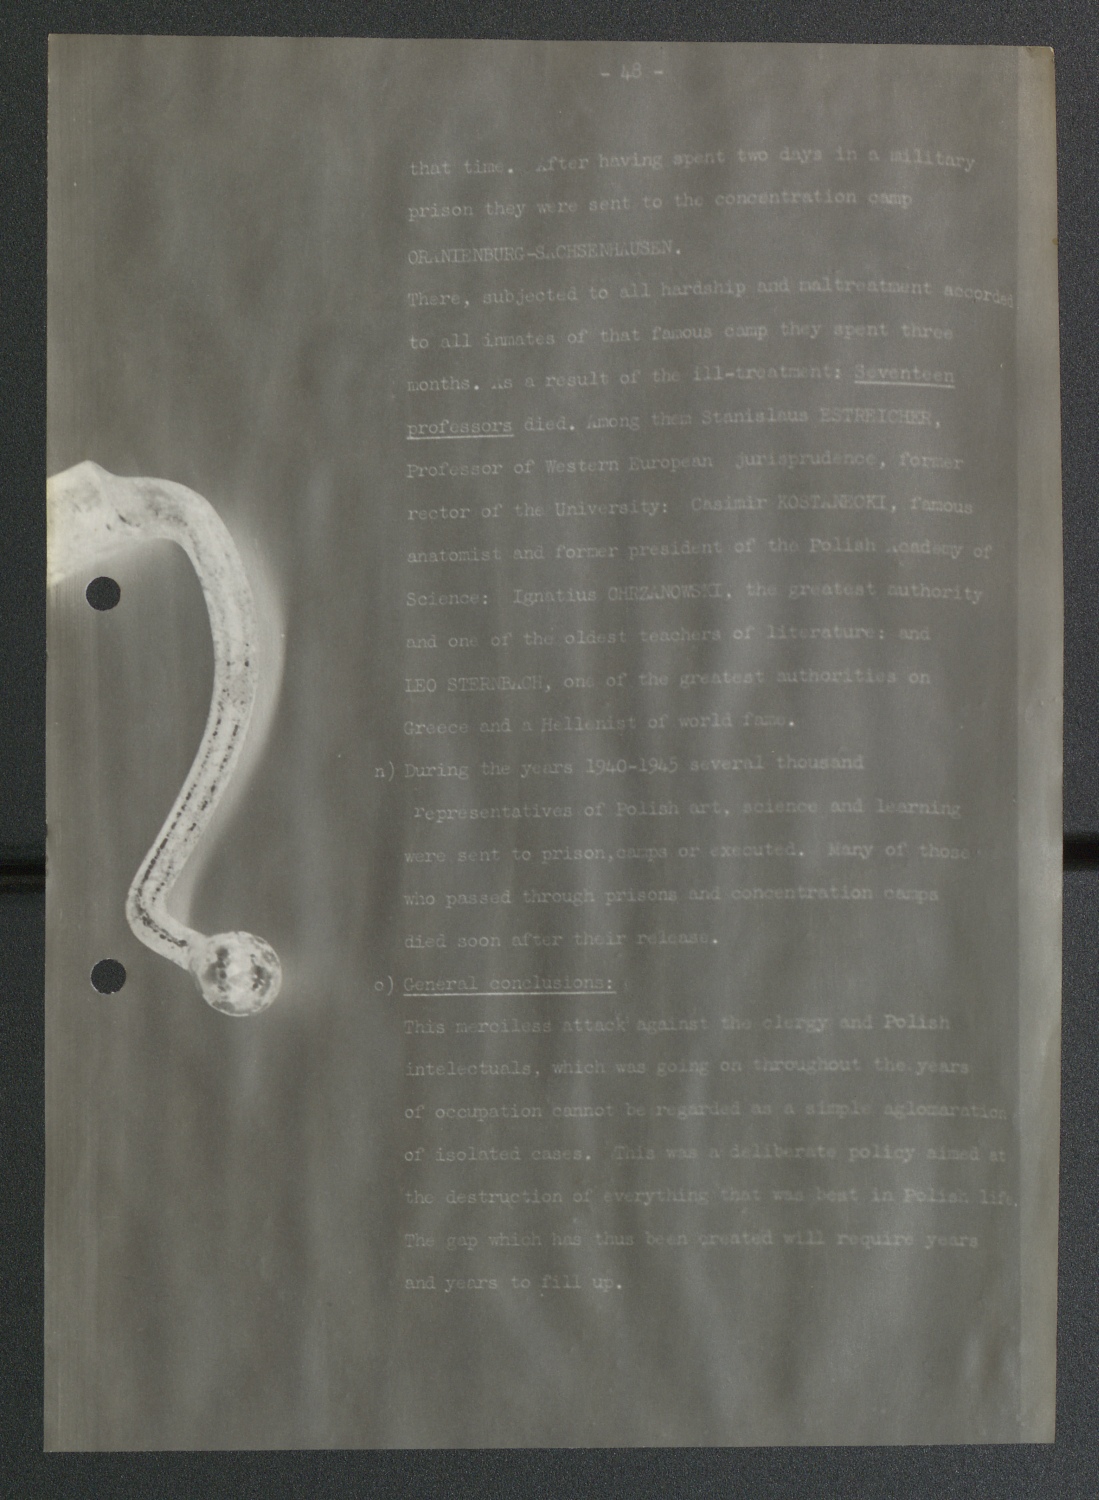 - 48 -
that time. After having spent two days in a military
prison they were sent to the concentration camp
ORANIENBURG-SACHSENHAUSEN.
There, subjected to all hardship and maltreatment accorded
to all inmates of that famous camp they spent three
months. As a result of the ill-treatment: Seventeen
professors died. Among them Stanislaus ESTREICHER,
Professor of Western European jurisprudence, former
rector of the University: Casimir KOSTANECKI, famous
anatomist and former president of the Polish Academy of
Science: Ignatius CHRZANOWSKI, the greatest authority
and one of the oldest teachers of literature: and
LEO STERNBACH, one of the greatest authorities on
Greece and a Hellenist of world fame.
n) During the years 1940-1945 several thousand
representatives of Polish art, science and learning
were sent to prison,camps or executed. Many of those
who passed through prisons and concentration camps
died soon after their release.
o) General conclusions:
This merciless attack against the clergy and Polish
intelectuals, which was going on throughout the years
of occupation cannot be regarded as a simple aglomaration
of isolated cases. This was a deliberate policy aimed at
the destruction of everything that was best in Polish life.
The gap which has thus been created will require years
and years to fill up.